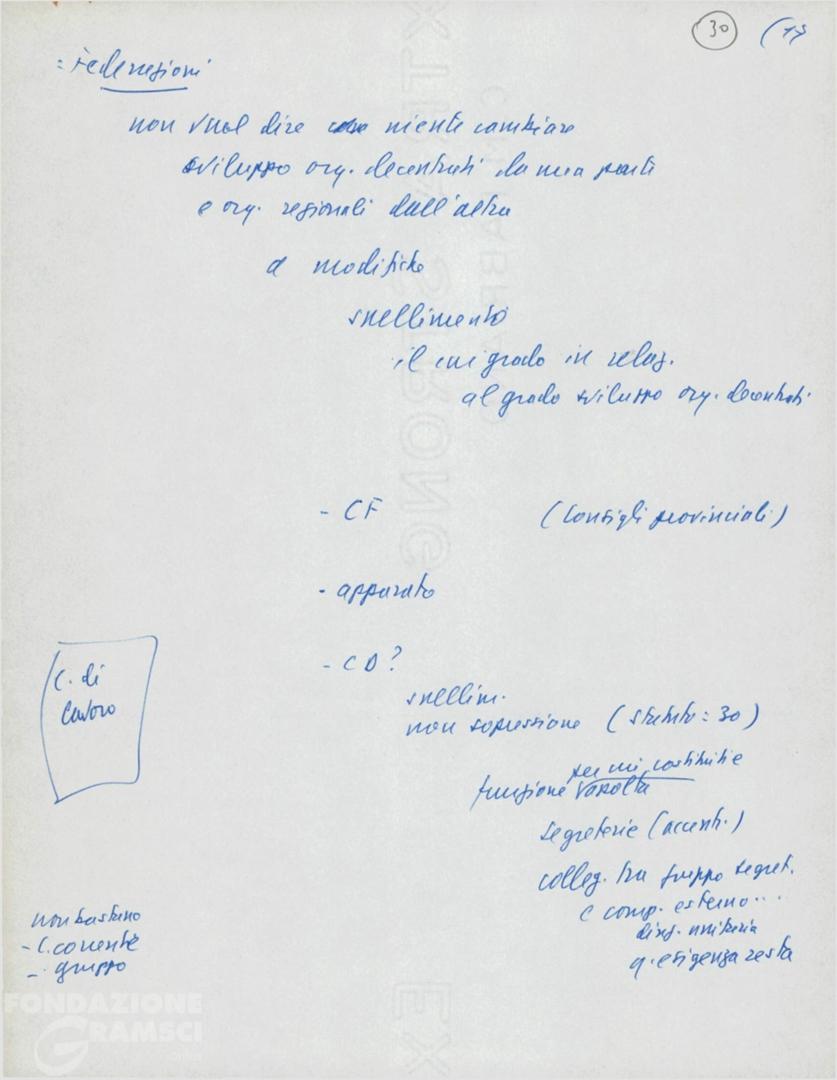 30 (17
: Federazioni
non vuol dire niente cambiare
sviluppo org. decentrati da una parte
e org. regionali dall'altra
a modifiche
snellimento
il cui grado in relaz.
al grado sviluppo org. decentrati
- CF (Consigli provinciali)
- apparato
- CD?
C. di
Lavoro
snellim.
non sopressione (statuto = 30)
per cui costituite
funzione
segreterie (accent.)
colleg. tra gruppo segret.
e comp. esterno...
direz. unitaria
q. esigenza resta
non bastano
- C.
- gruppo
FONDAZIONE
GRAMSCI
EXTRA STRONG
EX